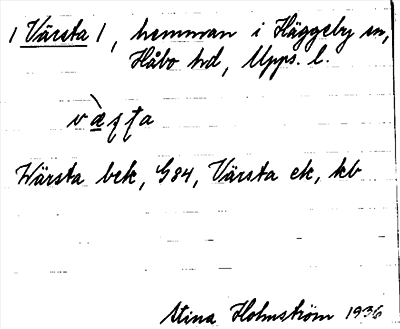 /Värsta/, hemman i Häggeby sn,
Håbo hd, Upps. l.
Wärsta bek, G84, Värsta ek, kb
Stina Holmström 1936